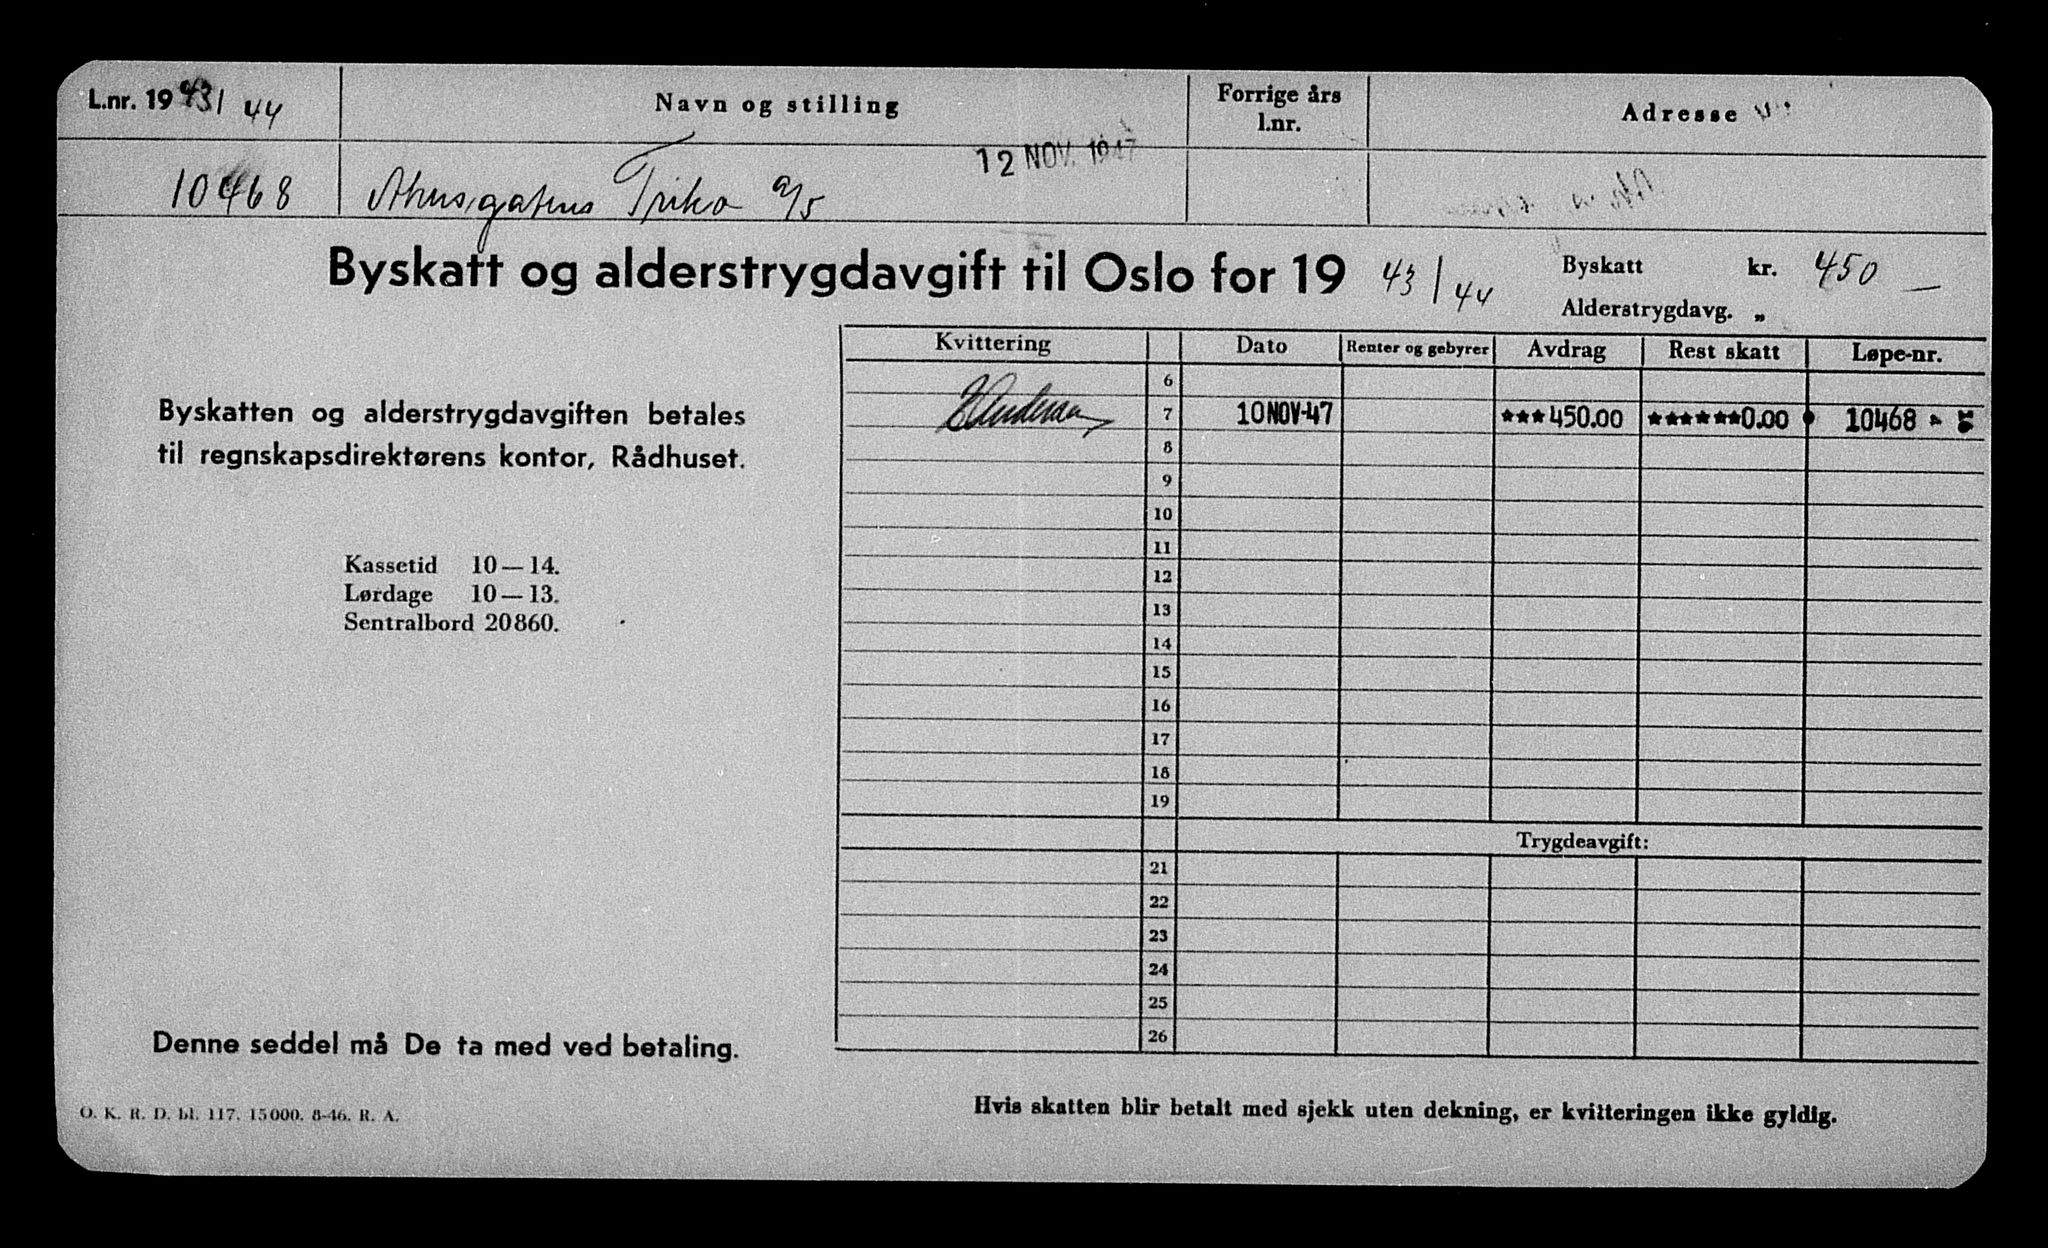 L.nr. 19 43/44
Navn og stilling
Forrige års
l.nr.
Adresse
12 NOV. 1947
10468
Trika a/s
Byskatt og alderstrygdavgift til Oslo for 19 43/44
Byskatt kr. 450 —
Alderstrygdavg. „
Kvittering Dato Renter og gebyrer Avdrag Rest skatt Løpe-nr.
6
7 10 NOV-47 ★★★450.00 ★★★★★★0.00 10468
8
9
10
11
12
13
14
15
16
17
18
19
Trygdeavgift:
21
22
23
24
25
26
Byskatten og alderstrygdavgiften betales
til regnskapsdirektørens kontor, Rådhuset.
Kassetid 10—14.
Lørdage 10—13.
Sentralbord 20860.
Denne seddel må De ta med ved betaling.
O. K. R. D. bl. 117. 15000. 8-46. R. A.
Hvis skatten blir betalt med sjekk uten dekning, er kvitteringen ikke gyldig.